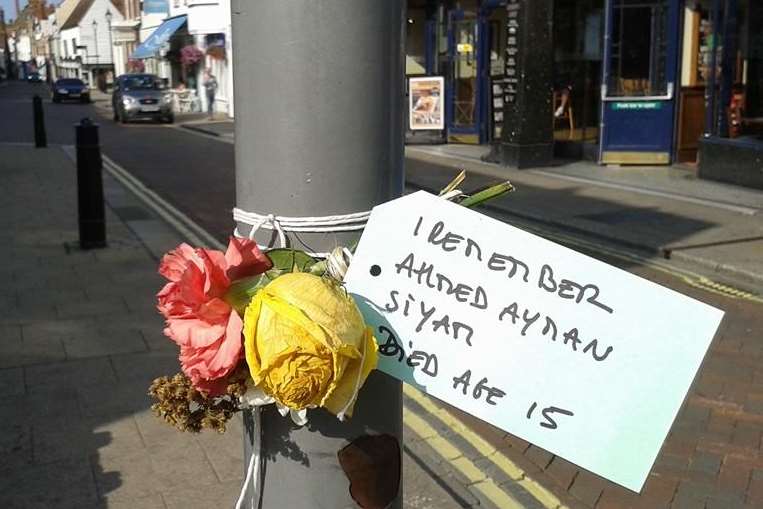 I REMEMBER
AHMED AYMAN
SIYAM
DIED AGE 15